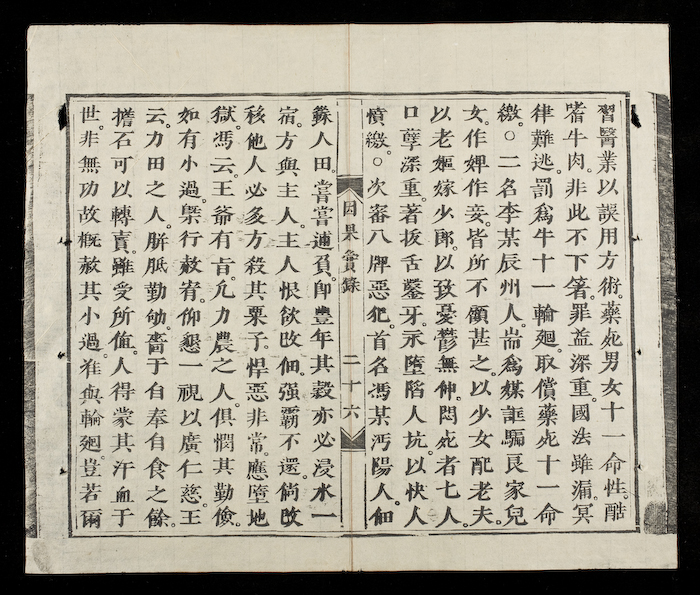 習醫業以誤用方術。藥死男女十一命。性酷
嗜牛肉。非此不下箸。罪益深重。國法雖漏。冥
律難逃。罰爲牛十一輪廻。取償藥死十一命
繳。○二名李某辰州人。耑爲媒誆騙良家兒
女。作婢作妾。皆所不顧。甚之。以少女配老夫。
以老嫗嫁少郎。以致憂鬱無伸。悶死者七人。
口孽深重。著拔舌鑿牙。示墮陷人坑。以快人
憤繳。○次審八牌惡犯。首名馮某沔陽人。佃
因果實錄 二十六
蘇人田。嘗嘗逋負。卽豐年其穀亦必浸水一
宿。方與主人。主人恨欲改佃。强霸不還。倘改
移他人。必多方殺其粟子。悍惡非常。應墮地
獄。馮云。王爺有旨。凢力農之人。俱憫其勤儉。
如有小過。槩行赦宥。仰懇一視。以廣仁慈。王
云。力田之人。胼胝勤劬。嗇于自奉。自食之餘。
擔石可以轉賣。雖受所値。人得蒙其汗血于
世。非無功。故槪赦其小過。准與輪廻。豈若爾